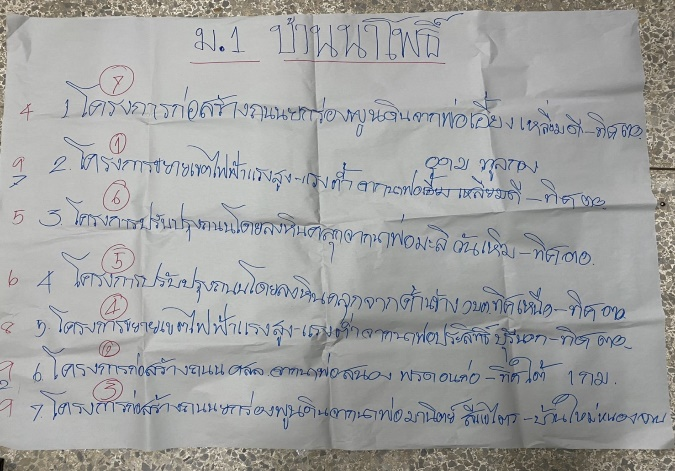 ม.1 บ้านนาโพธิ์
7
4 1 โครงการก่อสร้างถนนยกร่องพูนดินจากพ่อเอี่ยง เหลี่ยมดี - ทิศ ตอ.
1
9 7 2. โครงการขยายเขตไฟฟ้าแรงสูง-แรงต่ำ จากนาพ่อ - ทิศ ตอ.
6
5 3. โครงการปรับปรุงถนนโดยลงหินคลุกจากนาพ่อมะลิ วันเหิม - ทิศ ตอ.
5
6 4 โครงการปรับปรุงถนนโดยลงหินคลุกจากด้านข้าง อบต ทิศเหนือ - ทิศ ตอ
4
8 5. โครงการขยายเขตไฟฟ้าแรงสูง-แรงต่ำจากนาพ่อประสิทธิ์ บุรีนอก - ทิศ ตอ.
2
6 โครงการก่อสร้างถนน คสล จากนาพ่อสนอง - ทิศใต้ 1 กม.
3
9 7. โครงการก่อสร้างถนนยกร่องพูนดินจากนาพ่อมานิตย์ - บ้านใหม่หนอง